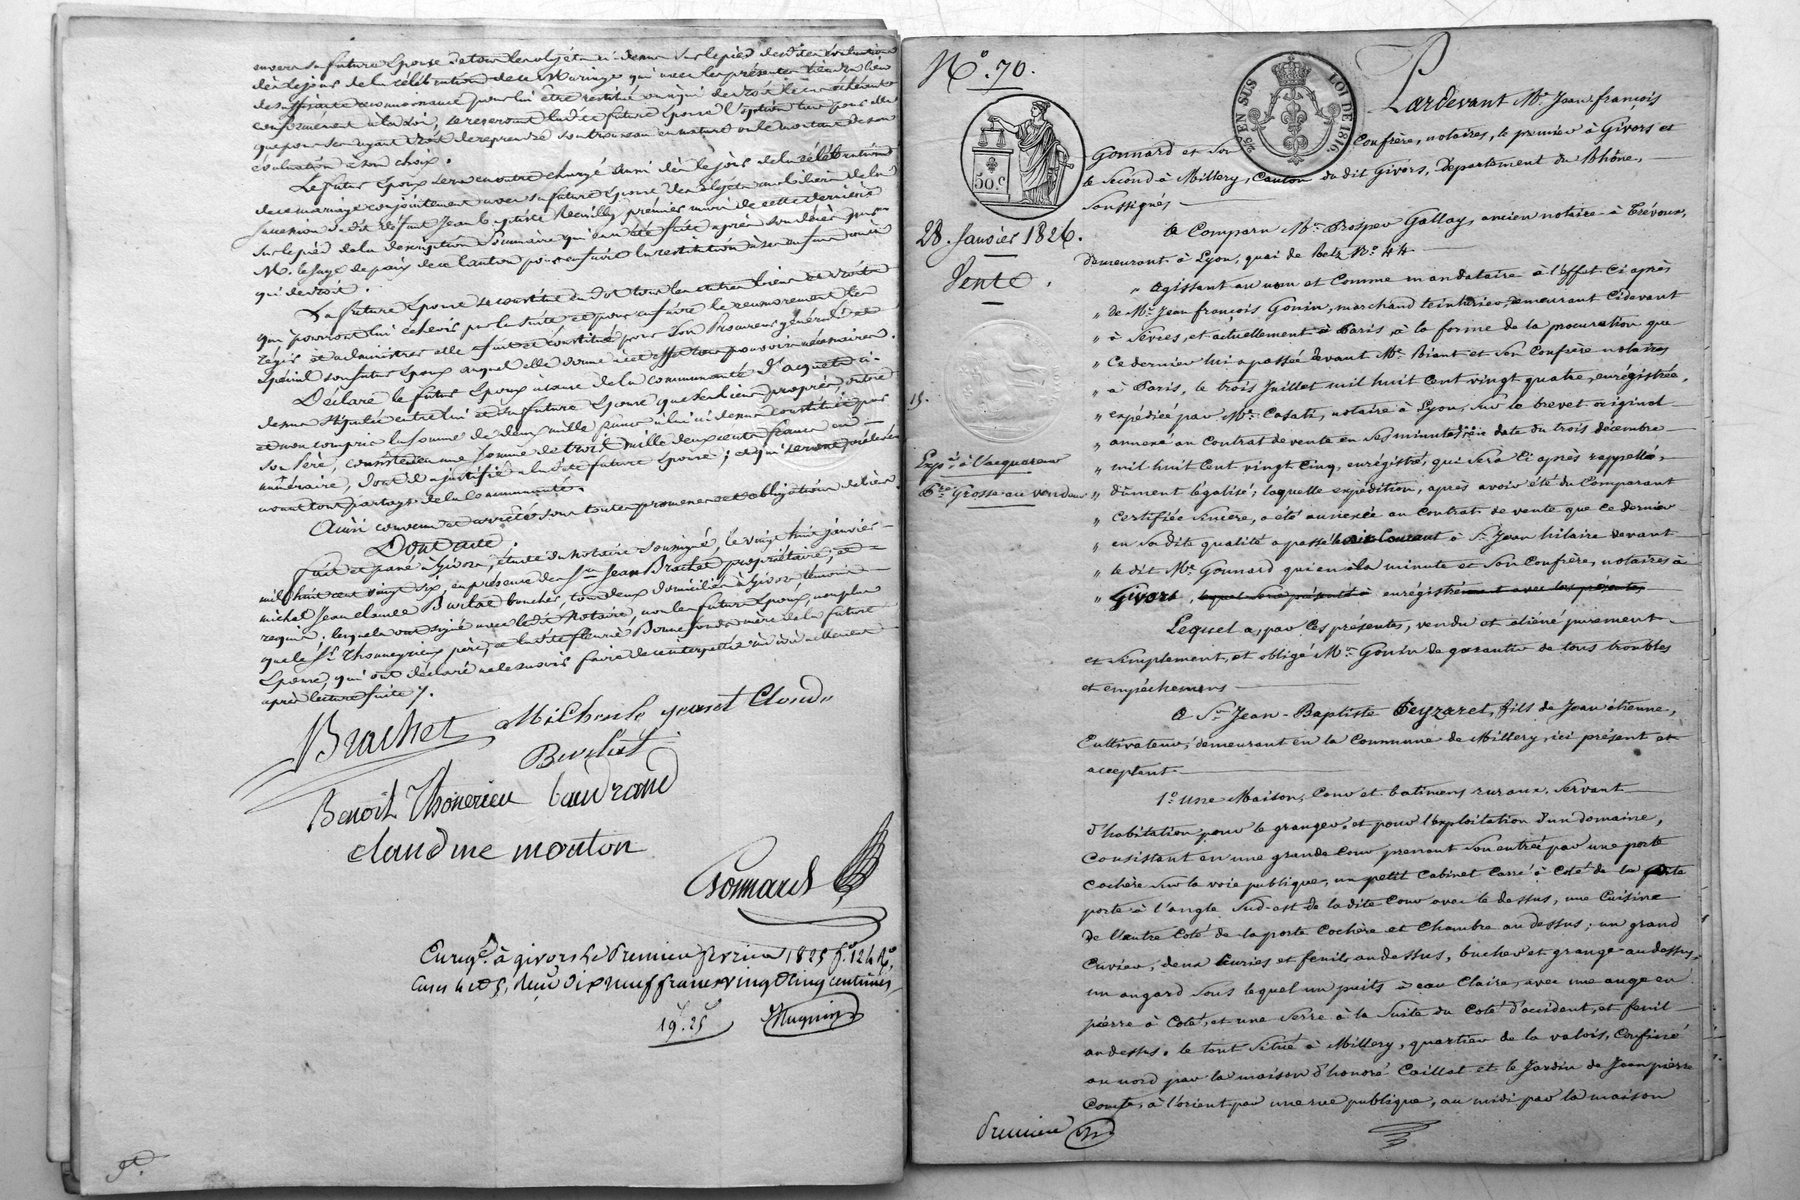 envers la future Epouse de tous les objets ci dessus sur le pied de
dès le jour de la célébration de ce Mariage qui avec les présentes tiendra lieu
de suffisante reconnaissance pour lui être restitué ou à qui de droit le cas échéant
conformément à la Loi, se réservant la dite future Epouse l'option
que pour ses ayant droit de reprendre son trousseau en nature ou le montant de son
évaluation à son choix.
Le futur Epoux sera en outre chargé aussi dès le jour de la célébration
de ce mariage conjointement avec sa future Epouse des objets mobiliers de la
succession du dit défunt Jean Baptiste premier mari de cette dernière
sur le pied de la description Sommaire qui en a été faite après son décès par
M. le Juge de paix de ce Canton pour en suivre la restitution
qui de droit.
La future Epouse se constitue en Dot tous les autres biens et droits
qui pourront lui échevoir par la suite et pour en faire le recouvrement les
régir et administrer elle fait et constitue pour son Procureur général et
spécial son futur Epoux auquel elle donne à cet effet tous pouvoirs nécessaires.
Déclare le futur Epoux à cause de la communauté d'acquets ci-
dessus stipulée entre lui et sa future Epouse que ses biens propres, outre
et non compris la somme de deux mille francs à lui ci dessus constituée par
son père, consistent en une somme de trois mille deux cents francs en
numéraire, dont il a justifié à la dite future Epouse; et qui seront prélevés
avant tout partage de la communauté.
Ainsi convenu et arrêté sous toutes promesses et obligations de biens.
Dont acte.
Fait et passé à Givors, étude du notaire soussigné, le vingt huit janvier
mil huit cent vingt six, en présence de Srs Jean Brachet propriétaire, et
michel Jean claude Burlat boucher, tous deux domiciliés à Givors, témoins
requis; lesquels ont signé avec le dit Notaire, non le futur Epoux, non plus
que le Sr Thonnerieux père, et la dite fleurie Bonnefond mère de la future
Epouse, qui ont déclaré ne le savoir faire de ce interpellés
après lecture faite /.
Brachet Michel jeanet Claude
Burlat
Benoit Thonerieu baudrand
claudine mouton
Gonnard
Enregé à givors le premier fevrier 1826 f° 124 R°,
cases 4 et 5, reçu dix neuf francs vingt cinq centimes
19f. 25c Huguin
N° 70.
50.c
28. Janvier 1826.
Vente.
15.
Expé à l'acquereur
1ere Grosse au vendeur
EN SUS LOI DE 1816
Pardevant Me Jean françois
Gonnard et Son Confrère, notaires, le premier à Givors et
le Second à Millery, Canton du dit Givors, département du Rhône,
Soussignés
A Comparu Mr Prosper Gallay, ancien notaire à Trévoux,
demeurant à Lyon, quai de Retz N° 44
" Agissant au nom et Comme mandataire à l'effet Ci après
" de Mr Jean françois Gonin, marchand teinturier, demeurant Cidevant
" à Sevres, et actuellement à Paris, à la forme de la procuration que
" Ce dernier lui a passée devant Me Riant et Son Confrère notaires
" à Paris, le trois Juillet mil huit Cent vingt quatre, enregistrée,
" expédiée par Me Casati, notaire à Lyon, Sur le brevet original
" annexé au Contrat de vente en Ses minutes en date du trois décembre
" mil huit Cent vingt Cinq, enregistré, qui Sera Ci après rappellé,
" dûment légalisé; laquelle expédition, après avoir été du Comparant
" Certifiée Sincère, a été annexée au Contrat de vente que Ce dernier
" en Sa dite qualité a passé huit Courant à Sr Jean hilaire devant
" le dit Me Gonnard qui en a la minute et Son Confrère, notaires à
" Givors, lequel sera présenté à enregistrement avec les présentes,
Lequel a, par Ces présentes, vendu et aliéné purement
et Simplement, et obligé Mr Gonin de garantir de tous troubles
et empêchemens
A Sr Jean-Baptiste Peyzaret, fils de Jean étienne,
Cultivateur, demeurant en la Commune de Millery, ici présent et
acceptant.
1° Une Maison, Cour et batimens ruraux, Servant
d'habitation pour le granger, et pour l'exploitation d'un domaine,
Consistant en une grande Cour prenant Son entrée par une porte
Cochère Sur la voie publique, un petit Cabinet Carré à Coté de la
porte à l'angle Sud-est de la dite Cour avec le dessus, une Cuisine
de l'autre Coté de la porte Cochère et Chambre au dessus; un grand
Cuvier, deux Ecuries et fenils au dessus, bucher et grange au dessus,
un angard Sous lequel un puits à eau Claire, avec une auge en
pierre à Coté, et une Serre à la Suite du Coté d'occident, et fenil
au dessus, le tout Situé à Millery, quartier de la valois, Confiné
au nord par la maison d'honoré Caillat et le Jardin de Jean pierre
Comte, à l'orient par une rue publique, au midi par la maison
premier